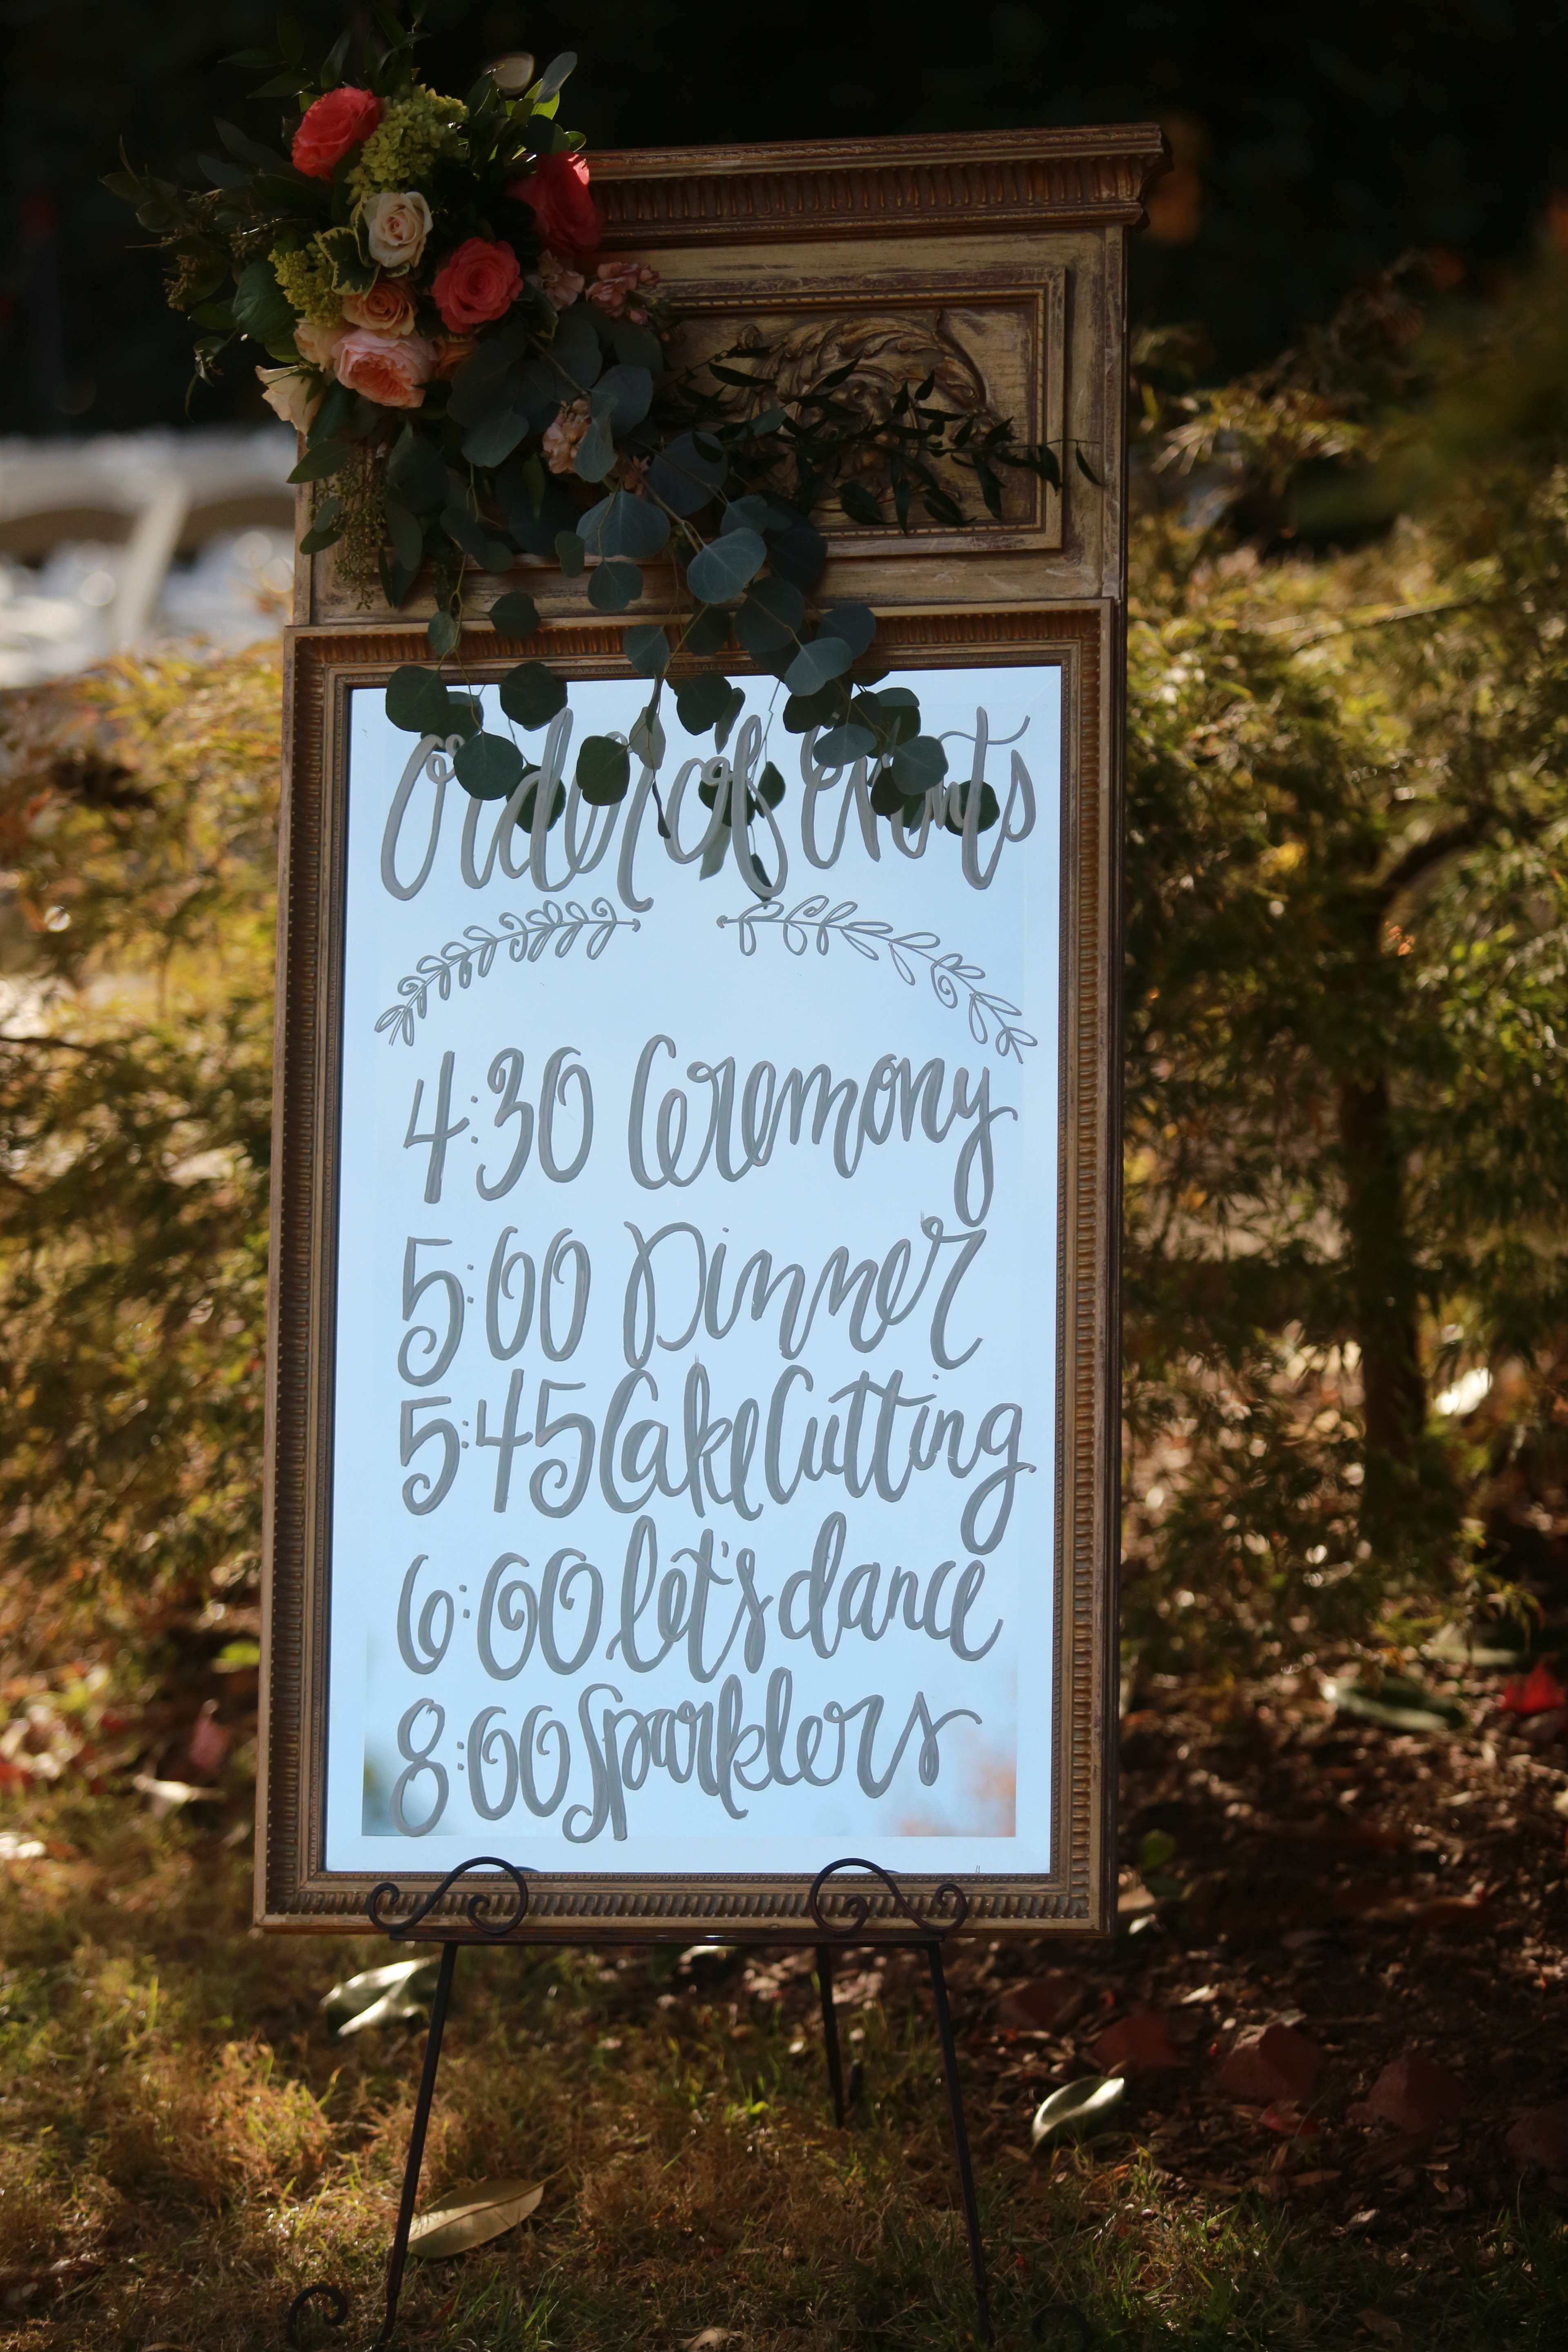 Order of Events
4:30 Ceremony
5:00 Dinner
5:45 Cake Cutting
6:00 let's dance
8:00 Sparklers